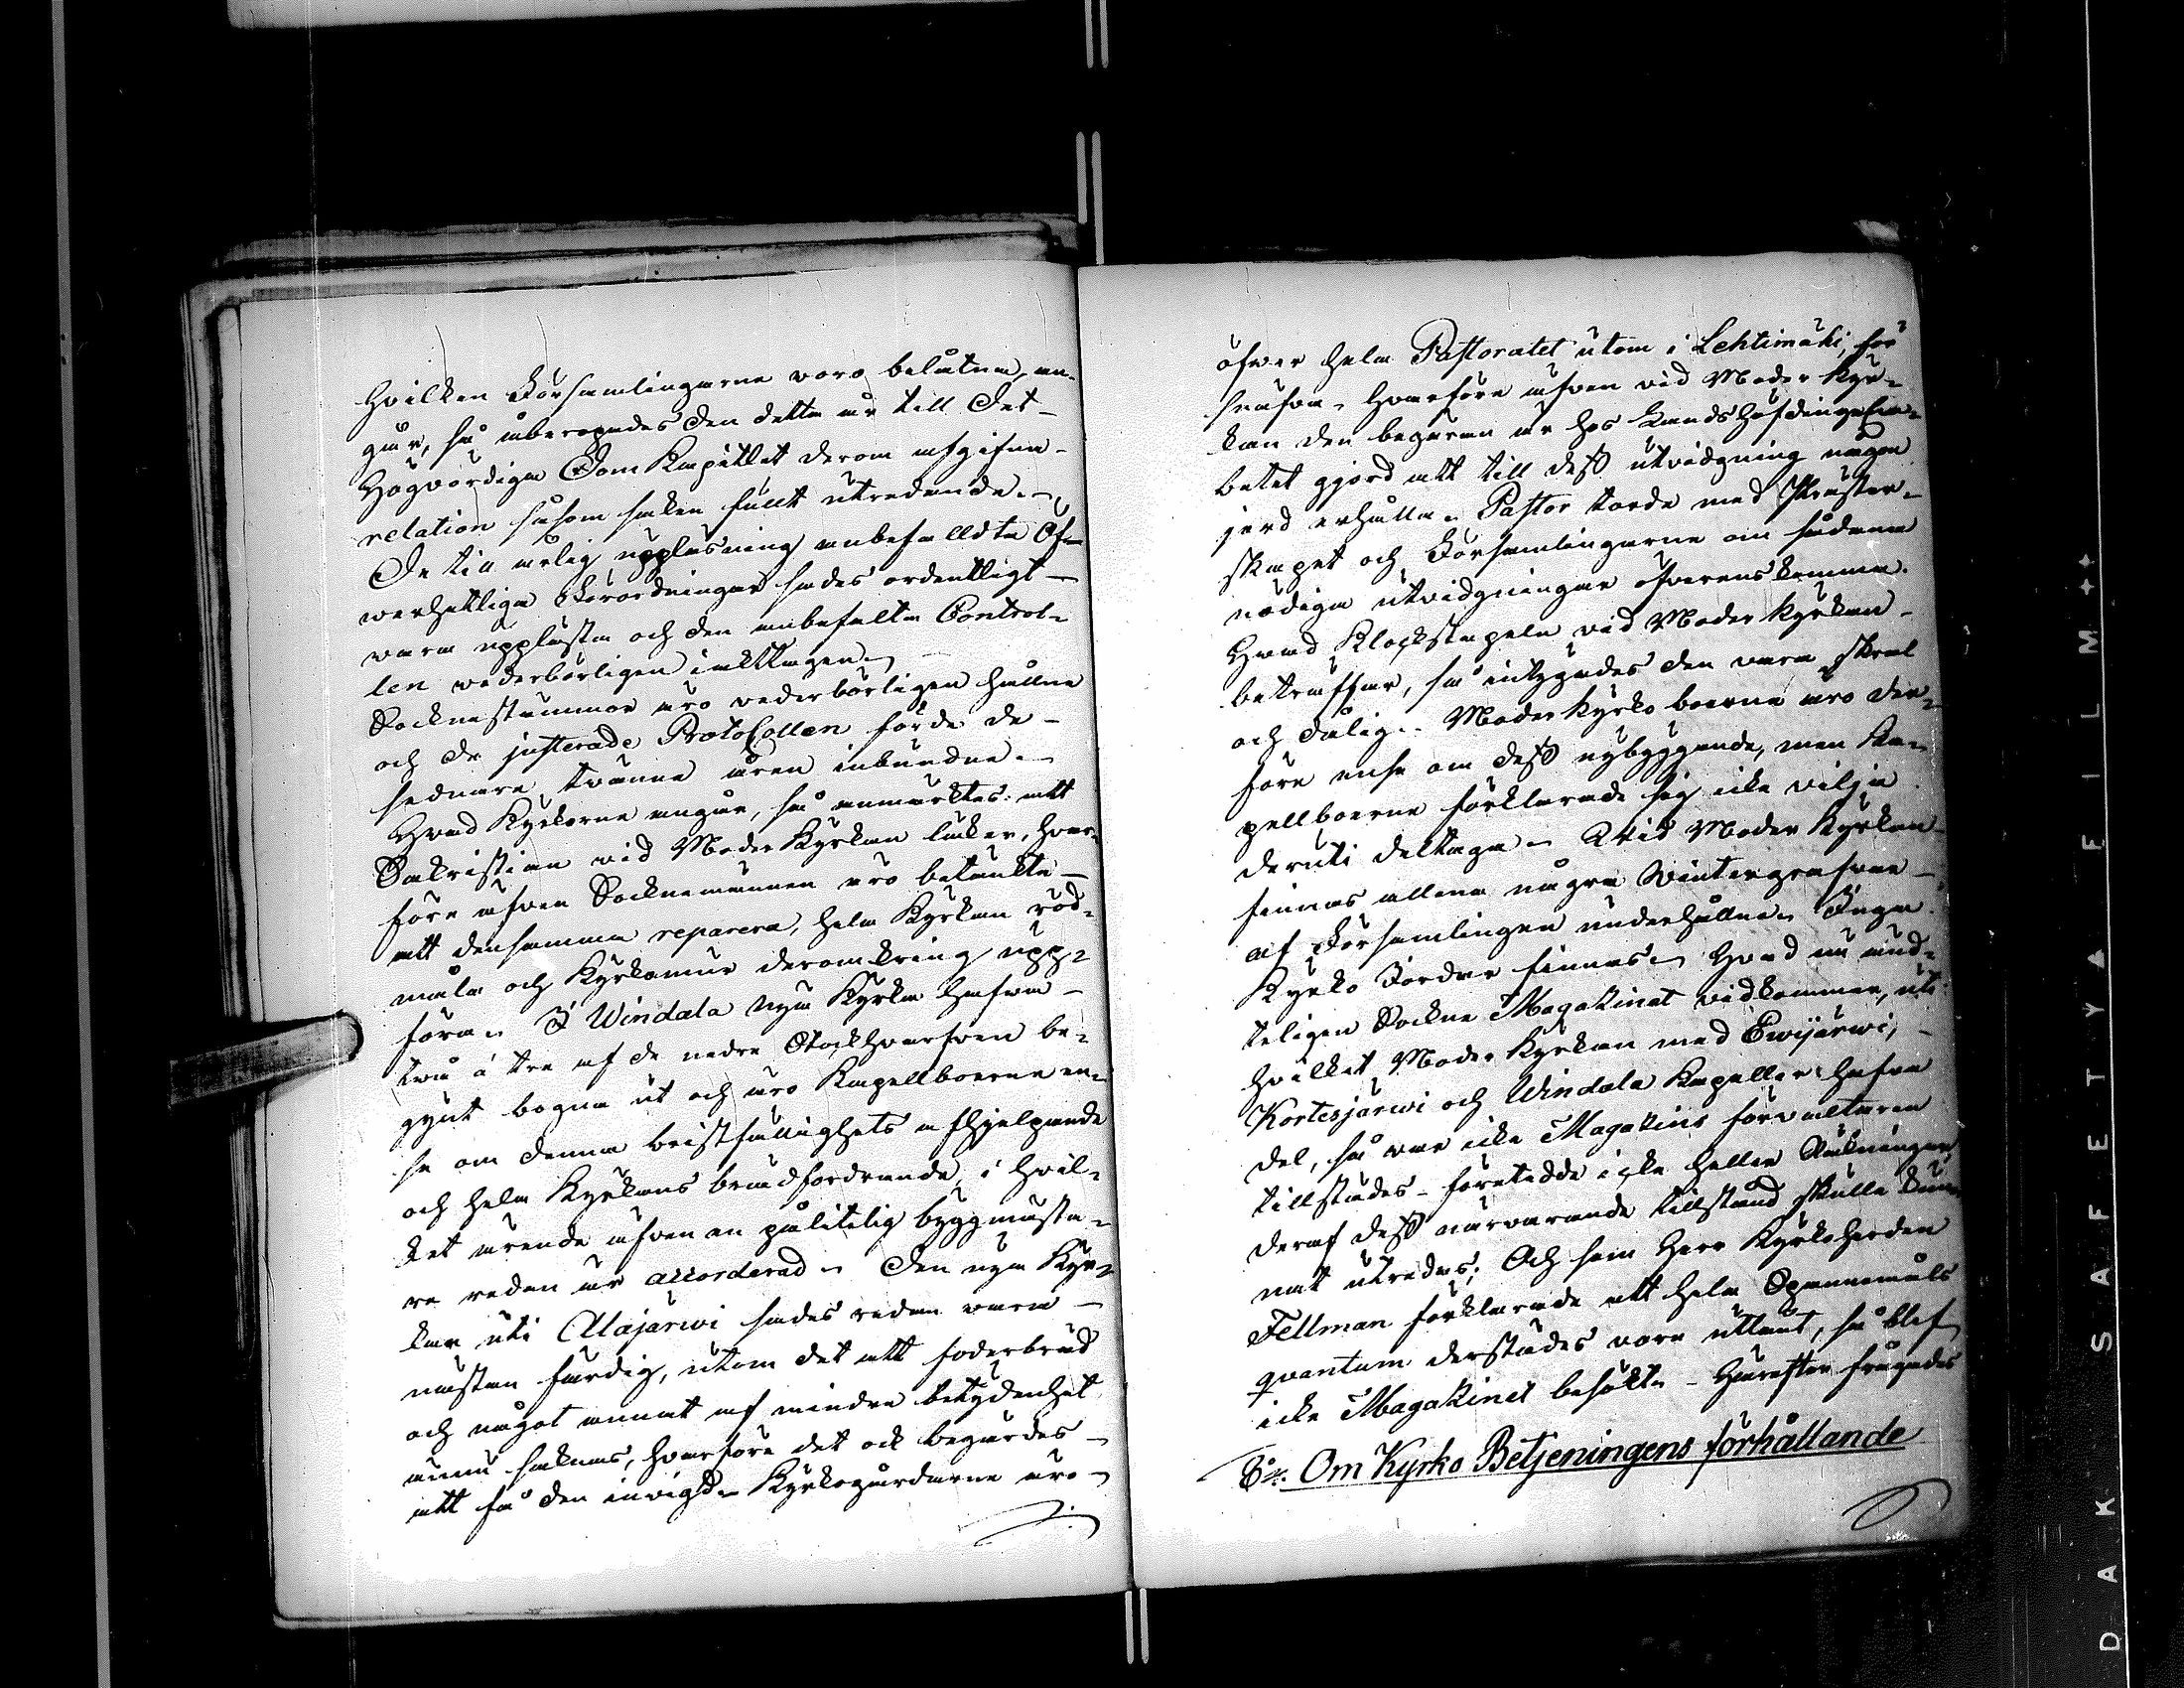 hvilken Församlingarne voro belåtna, an-
går, så åberopades den detta år till Det
Högvördiga Dom Kapitlet derom afgifna
relation såsom saken fullt utredande.
De till årlig uppläsning anbefallda Öf-
werhetliga Förordningar sades ordentligt
vara upplästa och den anbefalta Control-
len vederbörligen iakttagen.
Sockne stämmor äro vederbörligen hållne
och de justerade Protocollen för de
sednare tvänne åren inbundne.
Hvad Kyrkorne angår, så anmärktes: att
Sakristian vid Moder Kyrkan läker, hvar-
före äfven Sockne männen äro betänkte
att densamma reparera, hela Kyrkan röd-
måla och Kyrkomur deromkring upp-
föra. I Windala nya Kyrka hafva
två à tre af de nedre Stockhvarfven be-
gynt bogna ut och äro Kapellboerne en-
se om denna bristfällighets afhjelpande
och hela Kyrkans brädfordrande, i hvil-
ket ärende äfven en pålitelig byggmästa-
re redan är accorderad. Den nya Kyr-
kan uti Alajärwi sades redan vara
nästan färdig, utom det att foderbräd
och något annat af mindre betydenhet
ännu saknas, hvarföre det ock begärdes
att få den invigd. Kyrkogårdarne äro
öfver hela Pastoratet utom i Lehtimäki, för
snäfva. Hvarföre äfven vid Moder Kyr-
kan den begäran är hos Landshöfdinge Em-
betet gjord att till dess utvidgning någon
jord erhålla. Pastor torde med Prester-
skapet och Församlingarne om sådana
nödiga utvidgningar öfverenskomma.
Hvad Klockstapeln vid Moder Kyrkan
beträffar, så intygades den vara skral
och dålig. Moder Kyrko boerne äro der-
före ense om dess nybyggande, men Ka-
pellboerne förklarade sig icke vilja
deruti deltaga. Wid Moder Kyrkan
finnas allena några Wintergrafvar
af Församlingen underhållne. Inga
Kyrko Jordar finnas. Hvad nu änd-
teligen Sockne Magazinet vidkommer, uti
hvilket Moder Kyrkan med Ewijärwi,
Kortesjärwi och Windala Kapeller hafva
del, så var icke Magazins förvaltaren
tillstädes, företedde icke heller Räkningar
deraf dess närvarande tillstånd skulle kun-
nat utredas; Och som Herr Kyrkoherden
Fellman förklarade att hela Spannemåls
quantum derstädes vore utlånt, så blef
icke Magazinet besökt. Härefter frågades
8:o. Om Kyrko Betjeningens förhållande
DAK SAFETY ▲ FILM ++